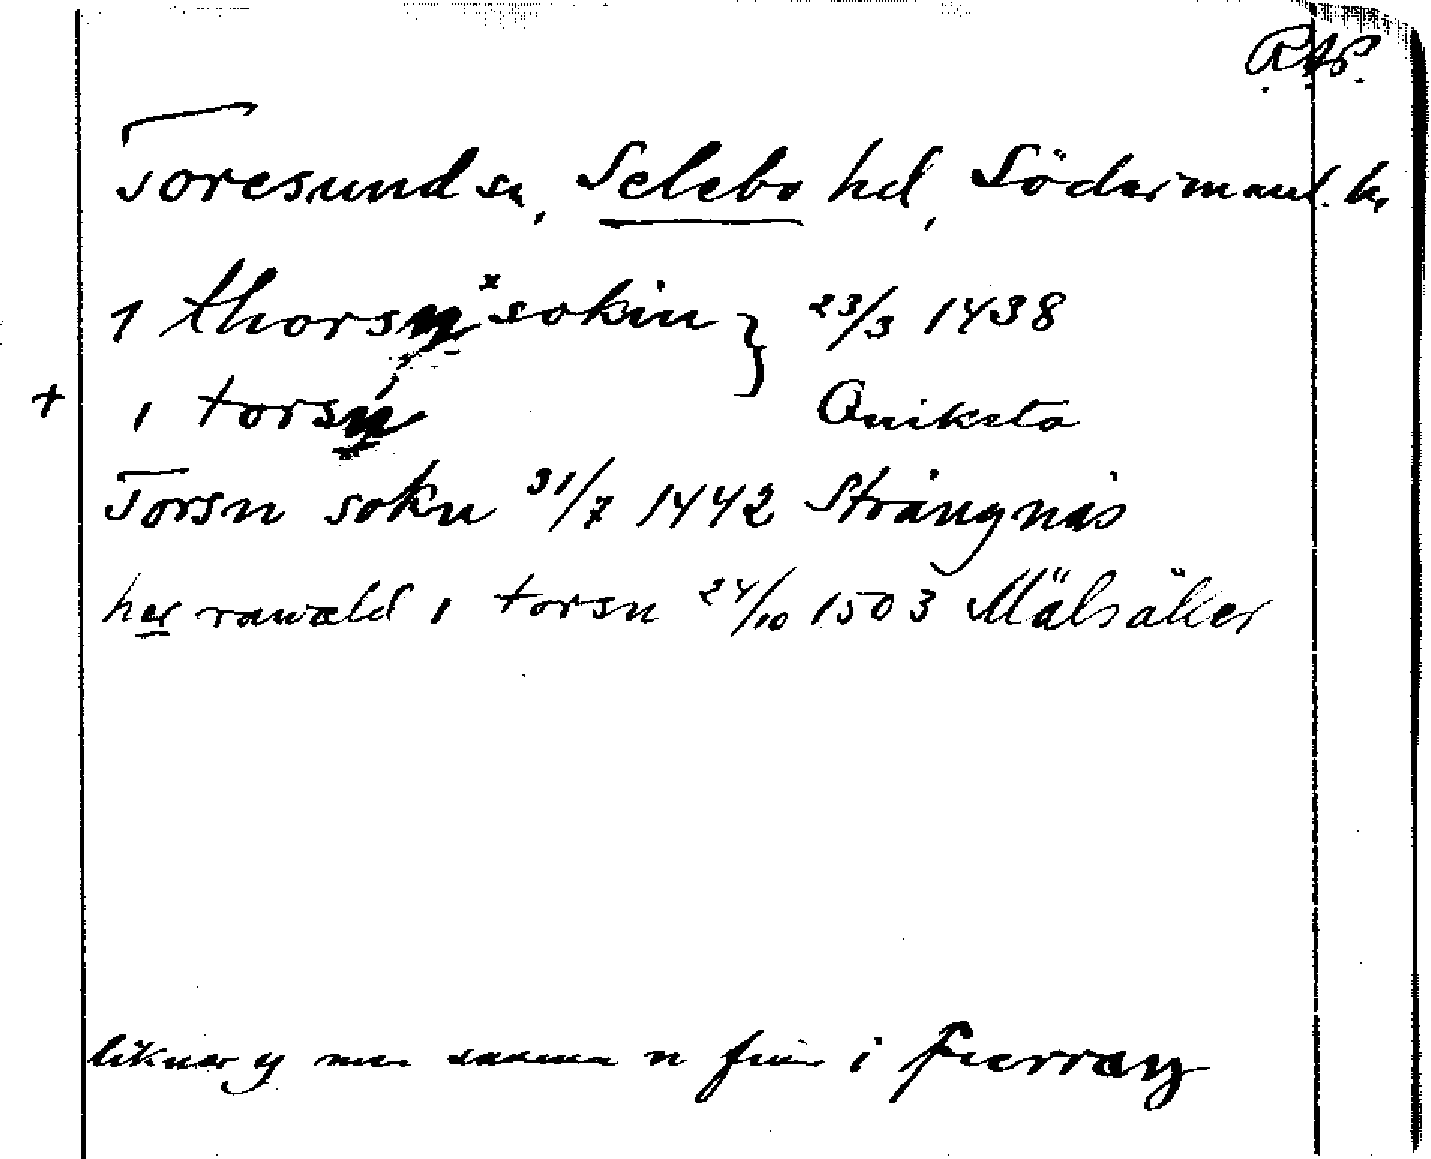 R.A.P.
Toresund sn, Selebo hd, Södermanl. l.
1 thorsn x sokin } 23/3 1438
+ 1 torsn Oniksta
Torsn sokn 31/7 1442 Strängnäs
her rawald i torsn 24/10 1503 Mälsåker
liknar y men samma n finns i fierray